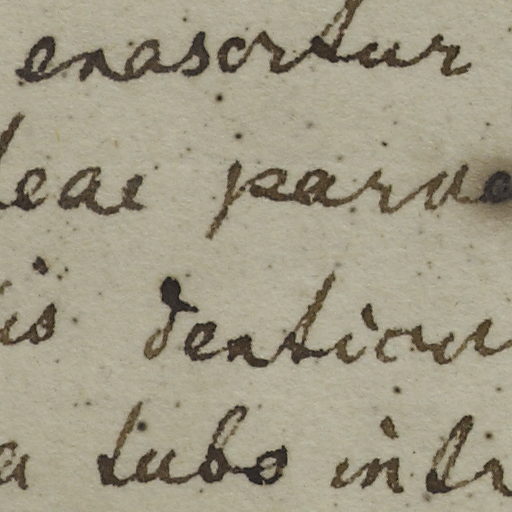 enascitur
leae parvo
is denticu
a tubo intr